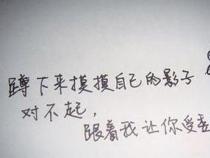 蹲下来摸摸自己的影子
对不起，
跟着我让你受委